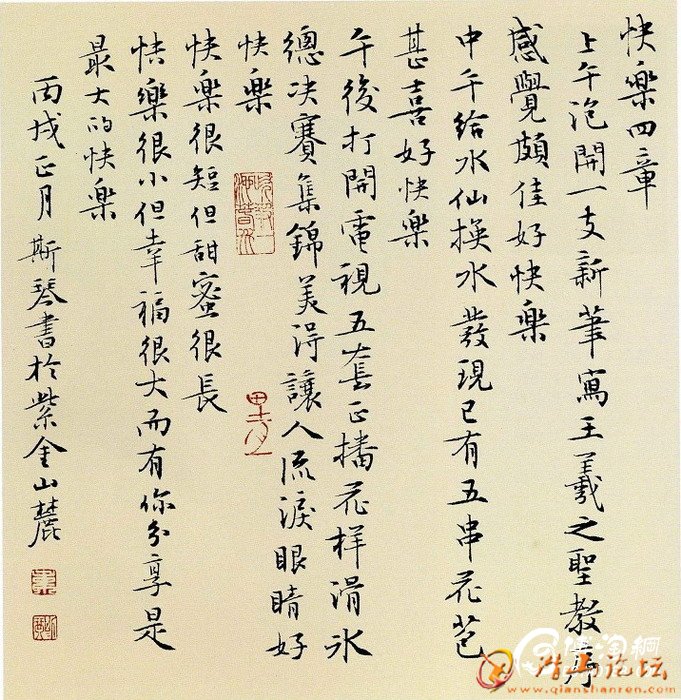 快樂四章
上午泡開一支新筆寫王羲之聖教序
感覺頗佳好快樂
中午給水仙換水發現已有五串花苞
甚喜好快樂
午後打開電視五套正播花樣滑冰
總决賽集錦美得讓人流淚眼睛好
快樂
快樂很短但甜蜜很長
快樂很小但幸福很大而有你分享是
最大的快樂
丙戌正月斯琴書於紫金山麓
潜山论坛
www.qianshanren.com